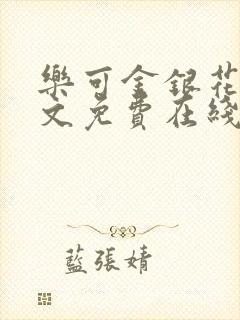 樂可金銀花
文免費在綫
藍張婧